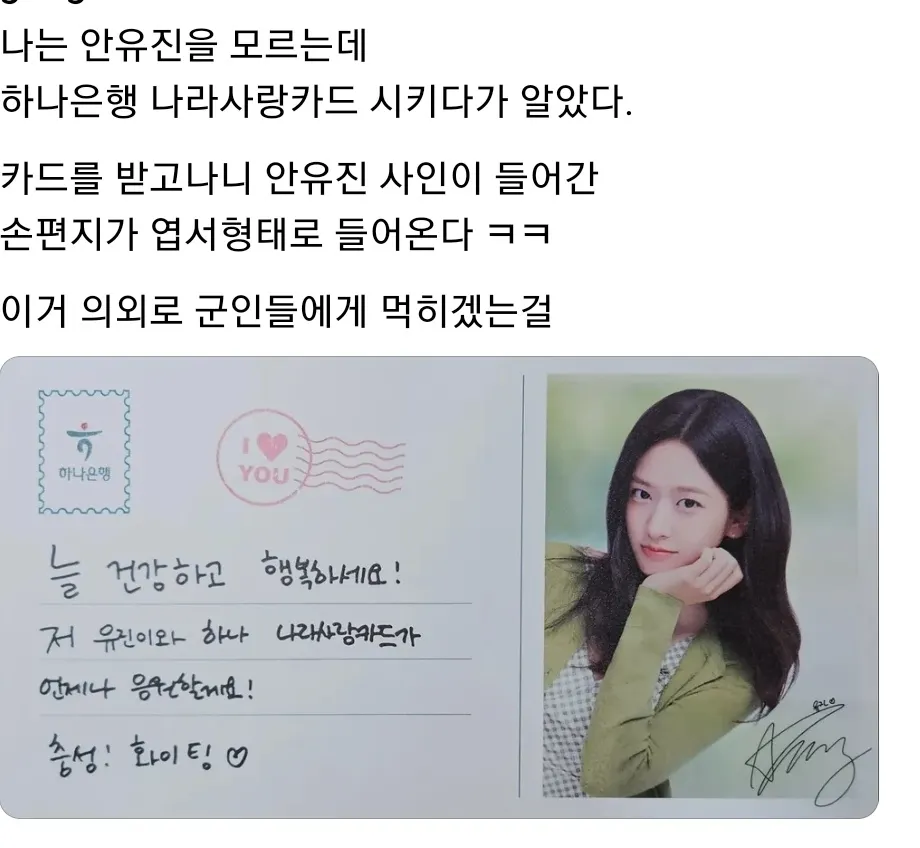 나는 안유진을 모르는데
하나은행 나라사랑카드 시키다가 알았다.
카드를 받고나니 안유진 사인이 들어간
손편지가 엽서형태로 들어온다 ㅋㅋ
이거 의외로 군인들에게 먹히겠는걸
하나은행
I ♥
YOU
늘 건강하고 행복하세요!
저 유진이와 하나 나라사랑카드가
언제나 응원할게요!
충성! 화이팅 ♡